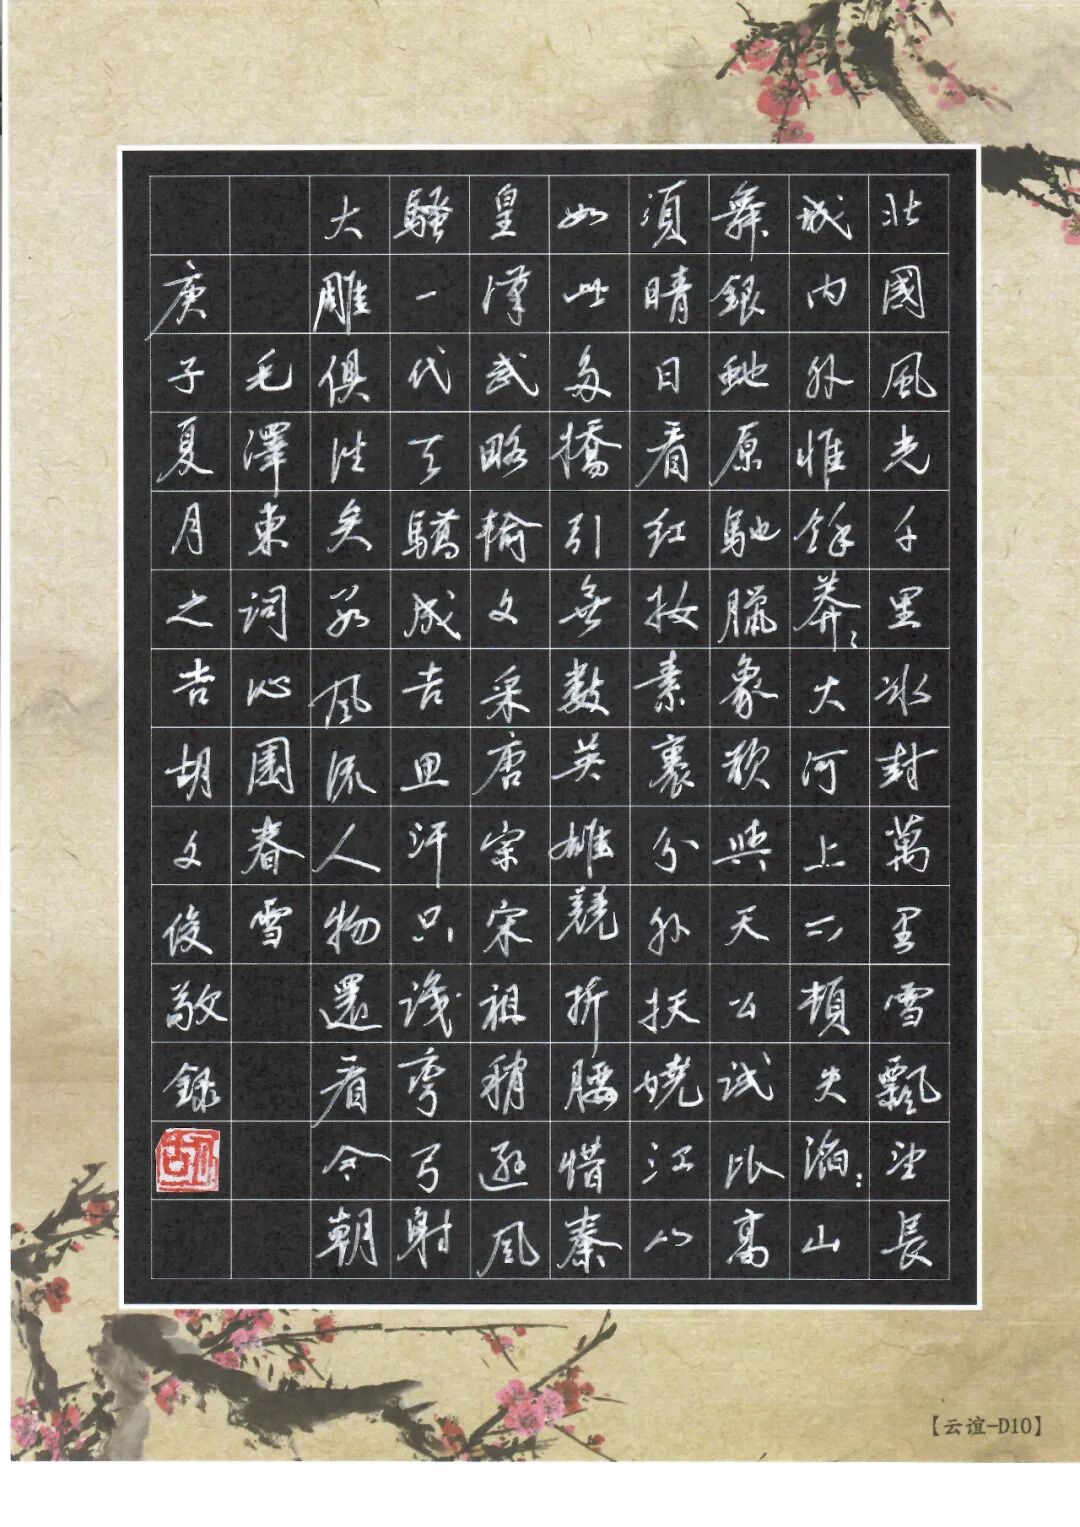 北國風光千里冰封萬里雪飄望長
城内外惟餘莽:大河上下頓失滔:山
舞銀蛇原馳臘象欲與天公試比高
須晴日看紅妝素裹分外妖嬈江山
如此多嬌引無數英雄競折腰惜秦
皇漢武略輸文采唐宗宋祖稍遜風
騷一代天驕成吉思汗只識彎弓射
大雕俱往矣數風流人物還看今朝
毛澤東詞沁園春雪
庚子夏月之吉胡文俊敬録
【云谊-D10】